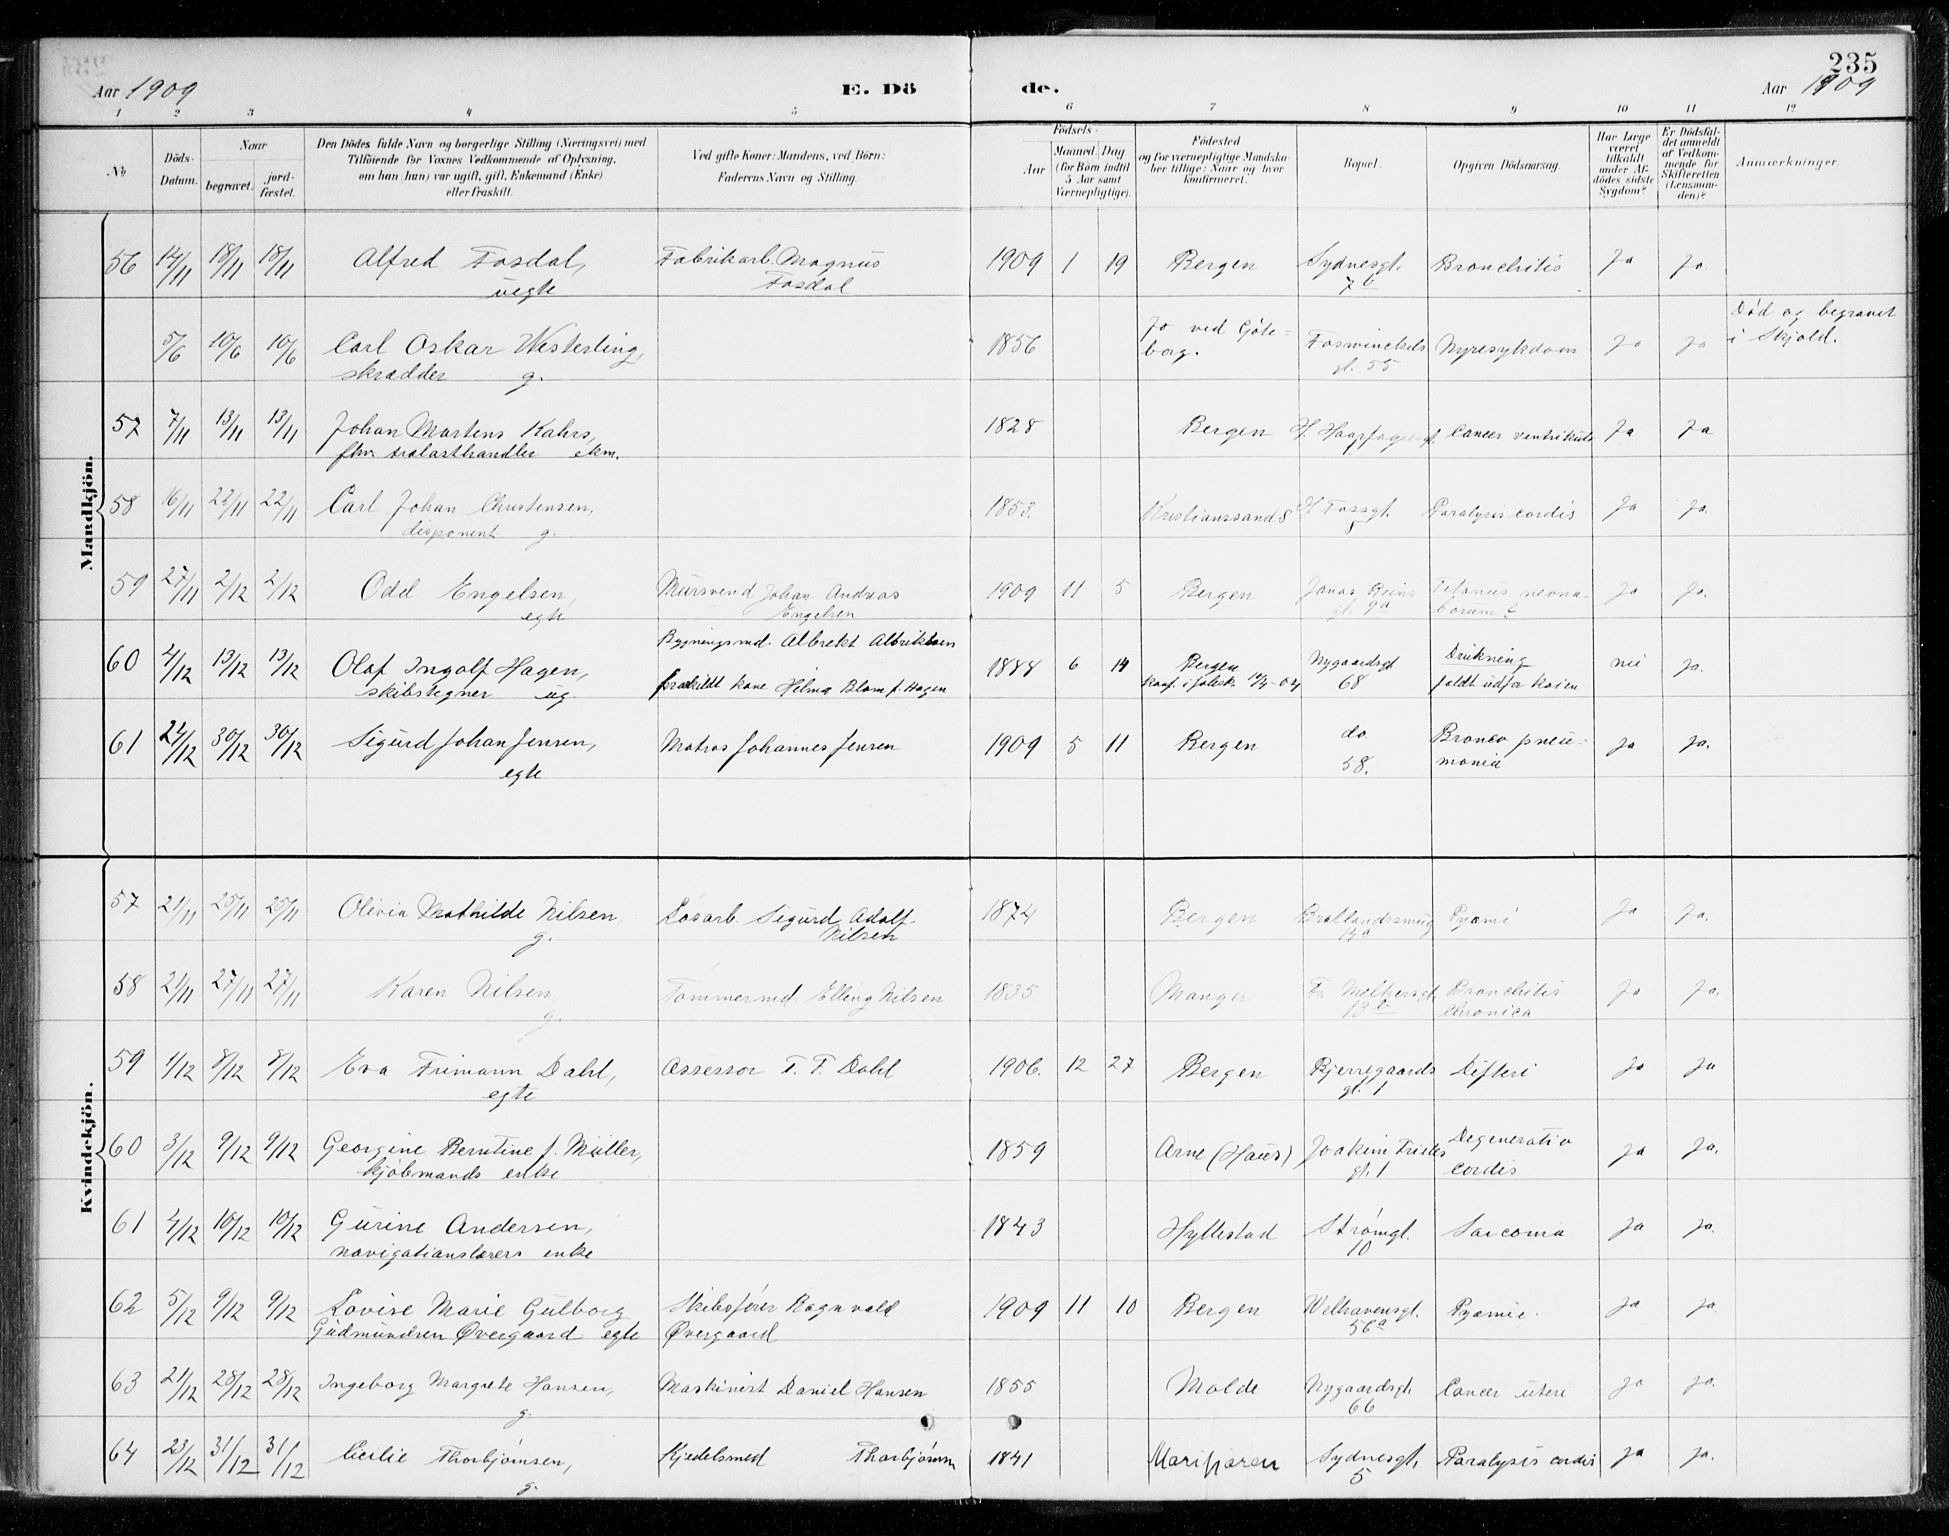 235
Aar 1909
E. Dö
de.
Aar 1909
1 2 3 4 5 6 7 8 9 10 11 12
No
Döds-Datum.
Naar
begravet.
jord-fæstet.
Den Dödes fulde Navn og borgerlige Stilling (Næringsvei) med
Tilföiende for Voxnes Vedkommende af Oplysning,
om han (hun) var ugift, gift, Enkemand (Enke)
eller fraskilt.
Ved gifte Koner: Mandens, ved Börn:
Faderens Navn og Stilling.
Födsels-
Aar
Maaned. Dag
(for Börn indtil
5 Aar samt
Værnepligtige).
Födested
og for værnepligtige Mandska-
ber tillige: Naar og hvor
konfirmeret.
Bopæl.
Opgiven Dödsaarsag.
Har Læge
været
tilkaldt
under Af-
dödes sidste
Sygdom?
Er Dödsfal-
det anmeldt
af Vedkom-
mende for
Skifteretten
(Lensman-
den)?
Anmærkninger.
Mandkjön.
56 14/11 18/11 18/11 Alfred Fosdal, Fabrikarb. Magnus 1909 1 19 Bergen Sydnesgt. Bronchitis Ja Ja
uegte Fosdal 7b
Død og begravet
5/6 10/6 10/6 Carl Oskar Westerling, 1856 ved Göte- Foswinckels Nyresykdom Ja Ja i Skjold.
skrædder g. borg. gt. 55
57 7/11 13/11 13/11 Johan Martens Kahrs, 1828 Bergen H. Haarfagersgt. Cancer ventrikuli Ja Ja
fhv. trælasthandler ekm.
58 16/11 22/11 22/11 Carl Johan Christensen, 1853. Kristianssand S Fossgt. Paralysis cordis Ja Ja.
disponent g. 8
59 27/11 2/12 2/12 Odd Engelsen, Mursvend Johan Andreas 1909 11 5 Bergen Jonas Reins Tetanus neona- Ja Ja.
egte Engelsen gt. 9a torum
Bygningssnd. Albrekt Albriktsen
60 4/12 13/12 13/12 Olaf Ingolf Hagen, 1888 6 14 Bergen Nygaardsgt Drukning nei ja.
skibstegner ug. fraskildt kone Helma Blom f. Hagen 68 faldt udfor kaien
61 24/12 30/12 30/12 Sigurd Johan Jensen, Matros Johannes Jensen 1909 5 11 Bergen do Bronco pneu- ja ja.
egte 58. monia
Kvindekjön.
57 21/11 25/11 25/11 Olivia Mathilde Nilsen Løsarb. Sigurd Adolf 1874 Bergen Bratlandssmug Pyæmi Ja Ja.
g. Nilsen 14a
58 21/11 27/11 27/11 Karen Nilsen, Tømmermd. Elling Nilsen 1835 Manger Fr. Meltzersgt. Bronchitis Ja Ja.
g. Chronica
59 1/12 8/12 8/12 Eva Frimann Dahl, Assessor T. F. Dahl 1906. 12 27 Bergen Bjerregaards Difteri Ja Ja
egte gt. 1
60 3/12 9/12 9/12 Georgine Berntine f. Müller, 1859 Arne (Haus) Joakim Frieles Degeneratio ja Ja.
kjøbmands enke gt. 1 cordis
61 4/12 10/12 10/12 Gurine Andersen, 1843 Hyllestad Strømgt. Sarcoma ja ja.
navigationslærers enke 10
62 5/12 9/12 9/12 Lovise Marie Gulborg Skibsfører Ragnvald 1909 11 10 Bergen Welhavensgt. Pyæmie. ja ja
Gudmundsen Øvergaard egte Øvergaard 56a
63 21/12 28/12 28/12 Ingeborg Margrete Hansen, Maskinist Daniel Hansen 1855 Molde Nygaardsgt. Cancer uteri ja ja.
g. 66
64 23/12 31/12 31/12 Cecilie Thorbjørnsen, Kjedelsmed Thorbjørnsen 1841 Marifjæren Sydnesgt. Paralysis cordis ja ja.
g. 5